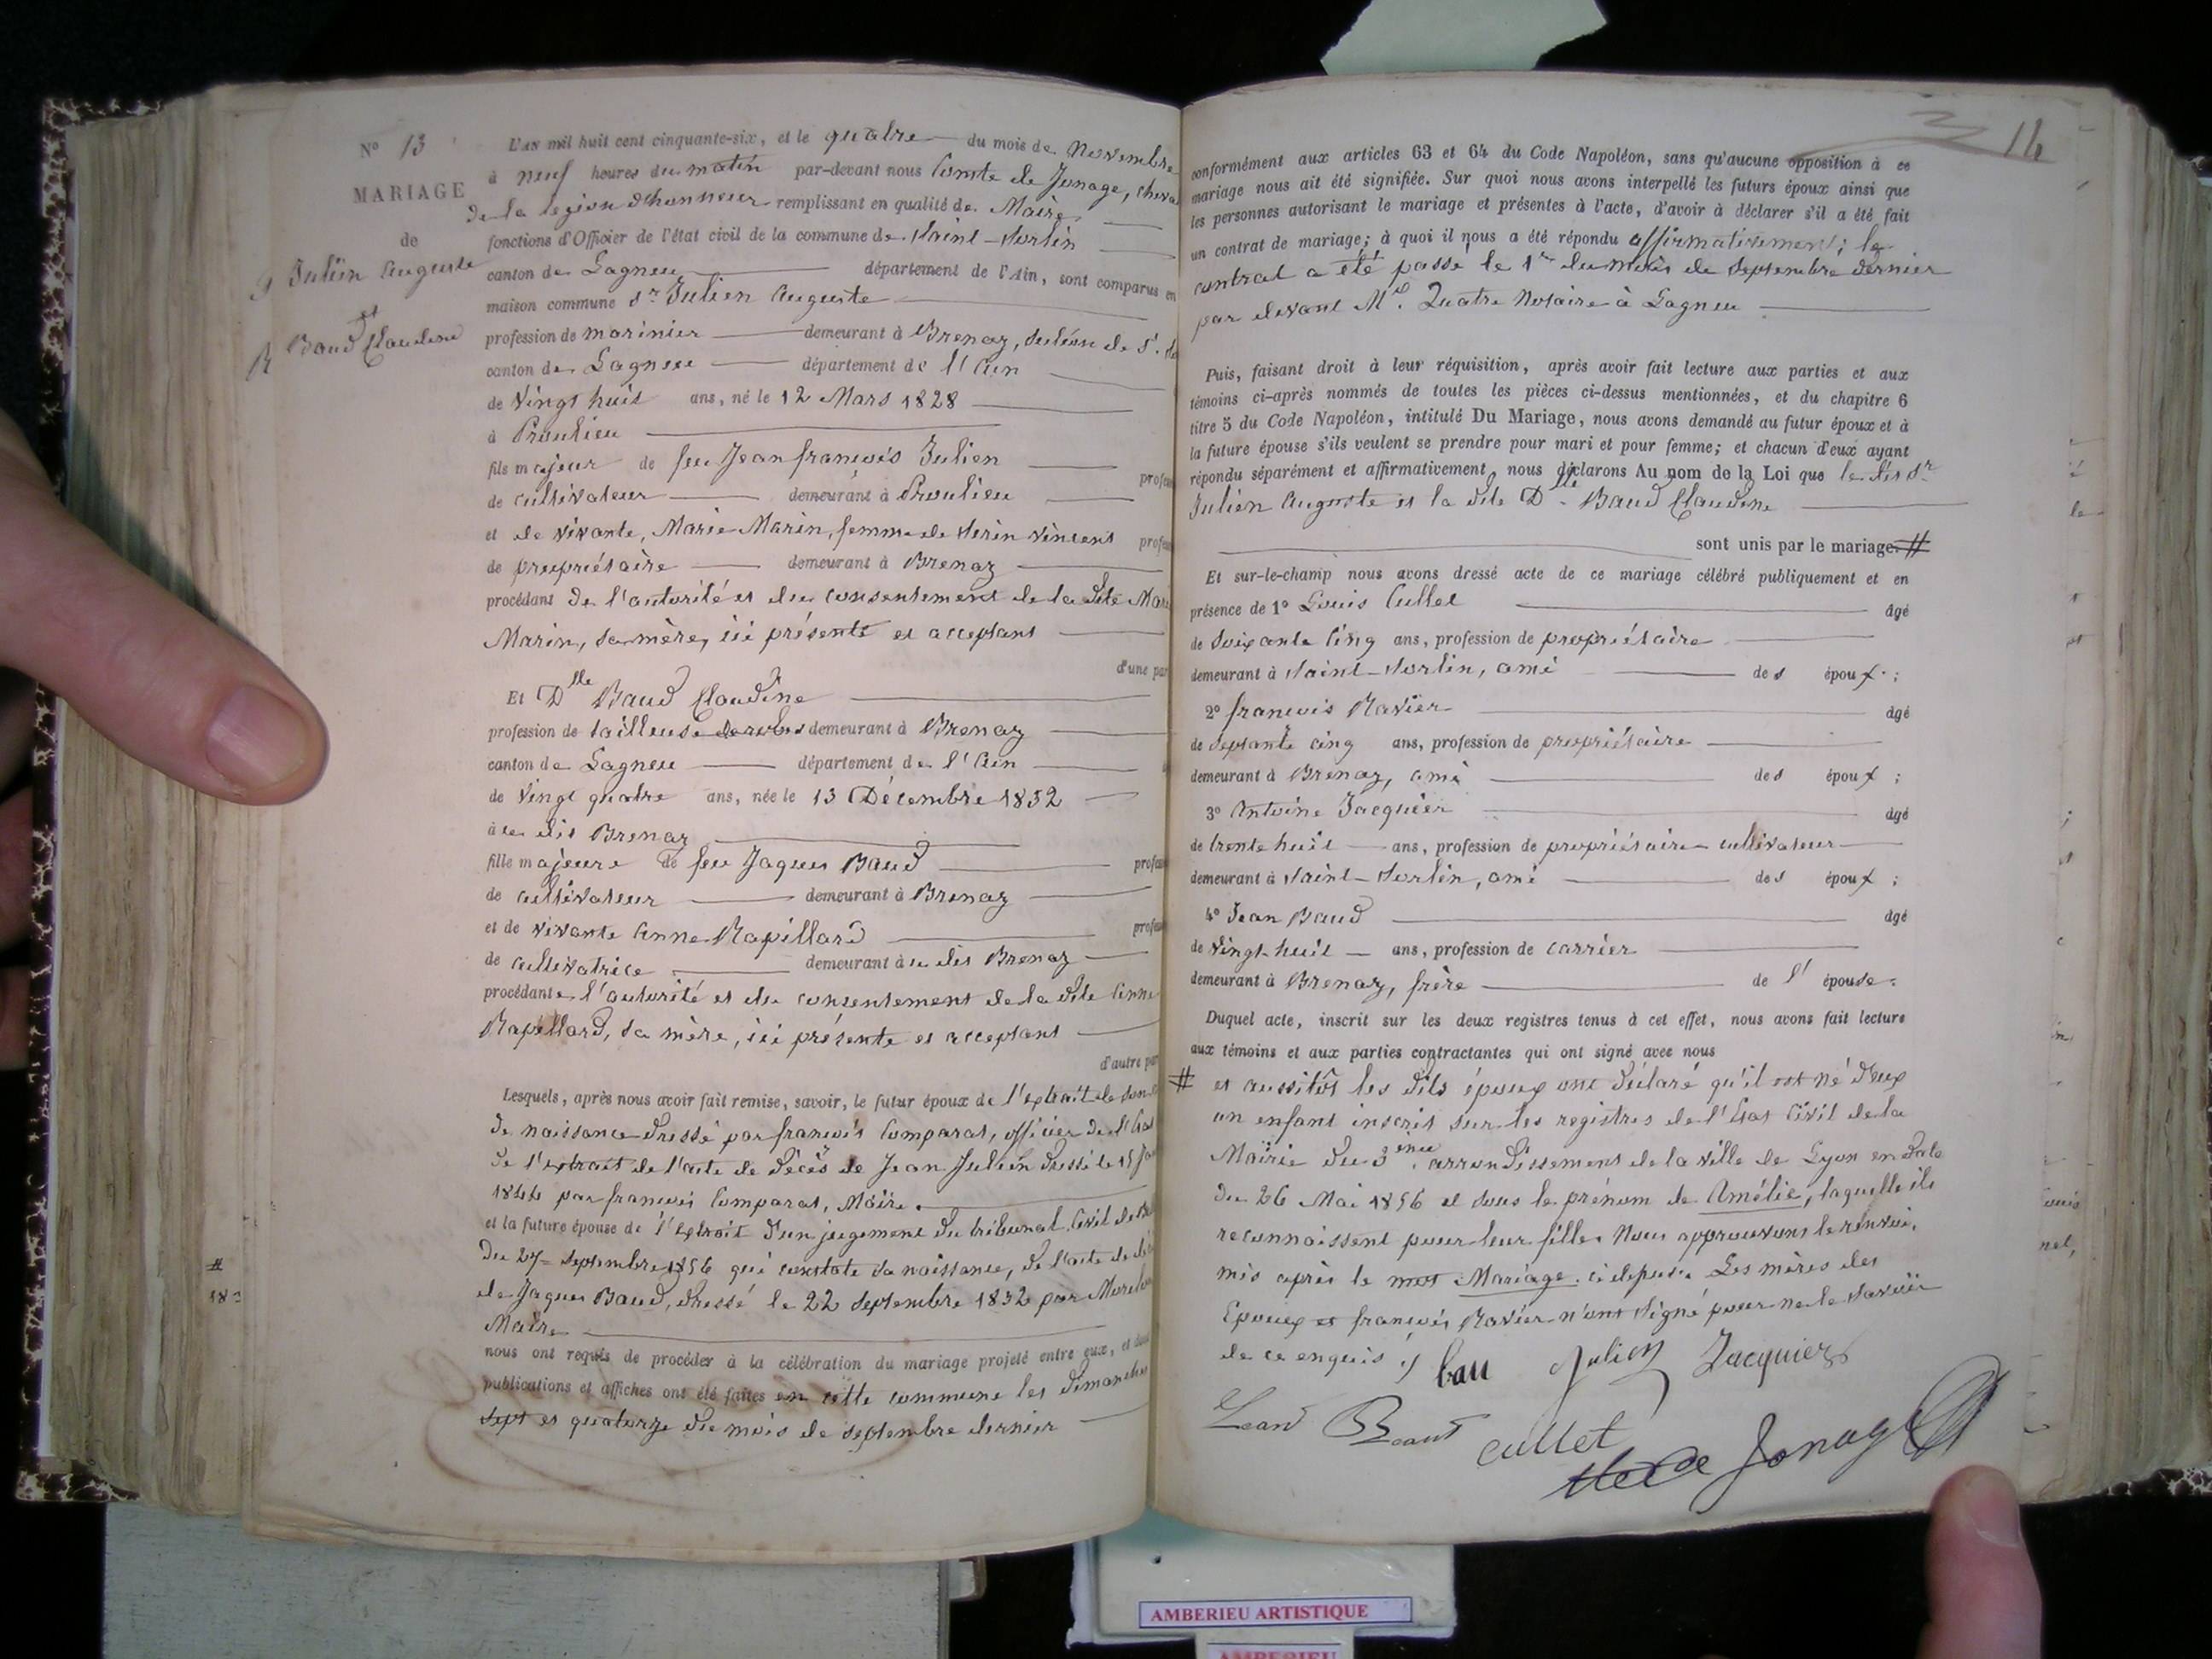 N° 13
MARIAGE
de
Julien Auguste
et
Baud Claudine
L'AN mil huit cent cinquante-six, et le quatre du mois de Novembre
à neuf heures du matin par-devant nous Comte de Jonage, cheva
de la légion d'honneur remplissant en qualité de Maire
fonctions d'Officier de l'état civil de la commune de Saint-Sorlin
canton de Lagneu département de l'Ain, sont comparus en
maison commune Sr Julien Auguste
profession de marinier demeurant à Brenaz, section de St.
canton de Lagneu département de l'Ain
de Vingt huit ans, né le 12 Mars 1828
à Proulieu
fils majeur de feu Jean françois Julien
profes
de cultivateur demeurant à Proulieu
et de vivante, Marie Marin, femme de Serin Vincent profes
de propriétaire demeurant à Brenaz
procédant de l'autorité et du consentement de la dite Mari
Marin, sa mère, ici présente et acceptant
d'une par
Et Dlle Baud Claudine
profession de tailleuse de robes demeurant à Brenaz
canton de Lagneu département de l'Ain
de Vingt quatre ans, née le 13 Décembre 1832
à u dit Brenaz
fille majeure de feu Jaques Baud profes
de cultivateur demeurant à Brenaz
et de vivante Anne Rapillard profes
de cultivatrice demeurant à u dit Brenaz
procédante l'autorité et du consentement de la dite Anne
Rapillard, sa mère, ici présente et acceptant
d'autre par
Lesquels, après nous avoir fait remise, savoir, le futur époux de l'extrait de son
de naissance dressé par françois Comparat, officier de l'Etat
de l'extrait de l'acte de décès de Jean Julien dressé le 15
1844 par françois Comparat, Maire.
et la future épouse de l'extrait d'un jugement du tribunal Civil de
Du 27 Septembre 1856 qui constate sa naissance, de l'acte de
de Jaques Baud, dressé le 22 Septembre 1832 par
Maire
nous ont requis de procéder à la célébration du mariage projeté entre eux, et dont
publications et affiches ont été faites en cette commune les dimanches
sept et quatorze du mois de septembre dernier
14
conformément aux articles 63 et 64 du Code Napoléon, sans qu'aucune opposition à ce
mariage nous ait été signifiée. Sur quoi nous avons interpellé les futurs époux ainsi que
les personnes autorisant le mariage et présentes à l'acte, d'avoir à déclarer s'il a été fait
un contrat de mariage; à quoi il nous a été répondu affirmativement; le
contrat a été passé le 1er du mois de Septembre dernier
par devant Me. Quatre Notaire à Lagneu
Puis, faisant droit à leur réquisition, après avoir fait lecture aux parties et aux
témoins ci-après nommés de toutes les pièces ci-dessus mentionnées, et du chapitre 6
titre 5 du Code Napoléon, intitulé Du Mariage, nous avons demandé au futur époux et à
la future épouse s'ils veulent se prendre pour mari et pour femme; et chacun d'eux ayant
répondu séparément et affirmativement, nous déclarons Au nom de la Loi que le dit Sr
Julien Auguste et la dite Dlle Baud Claudine
sont unis par le mariage. #
Et sur-le-champ nous avons dressé acte de ce mariage célébré publiquement et en
présence de 1° Louis Cullet âgé
de soixante cinq ans, profession de propriétaire
demeurant à Saint-Sorlin, ami des époux.;
2° françois Ravier âgé
de septante cinq ans, profession de propriétaire
demeurant à Brenaz, ami des époux;
3° Antoine Jacquier âgé
de trente huit ans, profession de propriétaire cultivateur
demeurant à Saint-Sorlin, ami des époux;
4° Jean Baud âgé
de Vingt-huit ans, profession de carrier
demeurant à Brenaz, frère de l'épouse.
Duquel acte, inscrit sur les deux registres tenus à cet effet, nous avons fait lecture
aux témoins et aux parties contractantes qui ont signé avec nous
# et aussitôt les dits époux ont déclaré qu'il est né d'eux
un enfant inscrit sur les registres de l'Etat Civil de la
Mairie du 3ème arrondissement de la ville de Lyon en date
du 26 Mai 1856 et sous le prénom de Amélie, laquelle ils
reconnaissent pour leur fille. Nous approuvons le renvoi,
mis après le mot Mariage. ci dessus. Les mères des
Epoux et françois Ravier n'ont signé pour ne le savoir
de ce enquis
bau Julien Jacquier
Jean Beaud
cullet
de Jonage
AMBERIEU ARTISTIQUE
AMBERIEU